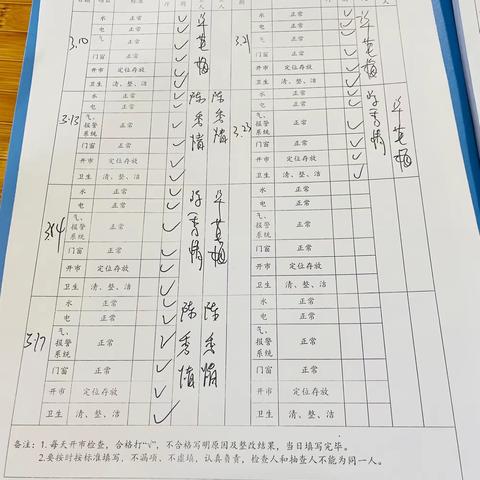 日期 项目 标准
3.10 水 正常 ✓ 3.21 水 正常 ✓
电 正常 ✓ 电 正常 ✓
气、 正常 ✓ 气、 正常 ✓
门窗 正常 ✓ 门窗 正常 ✓
开市 定位存放 ✓ 开市 定位存放 ✓
卫生 清、整、洁 ✓ 卫生 清、整、洁 ✓
3.13 水 正常 ✓ 陈 陈 3.23 水 正常 ✓
电 正常 ✓ 电 正常 ✓
气、报警系统 正常 ✓ 气、报警系统 正常 ✓
门窗 正常 ✓ 门窗 正常 ✓
开市 定位存放 ✓ 开市 定位存放 ✓
卫生 清、整、洁 ✓ 卫生 清、整、洁 ✓
3.14 水 正常 ✓ 水 正常
电 正常 ✓ 电 正常
气、报警系统 正常 ✓ 气、报警系统 正常
门窗 正常 ✓ 门窗 正常
开市 定位存放 ✓ 开市 定位存放
卫生 清、整、洁 ✓ 卫生 清、整、洁
3.17 水 正常 ✓ 陈 陈 水 正常
电 正常 ✓ 电 正常
气、报警系统 正常 ✓ 气、报警系统 正常
门窗 正常 ✓ 门窗 正常
开市 定位存放 ✓ 开市 定位存放
卫生 清、整、洁 ✓ 卫生 清、整、洁
备注：1.每天开市检查，合格打“√”，不合格写明原因及整改结果，当日填写完毕。
2.要按时按标准填写，不漏项、不虚填，认真负责，检查人和抽查人不能为同一人。